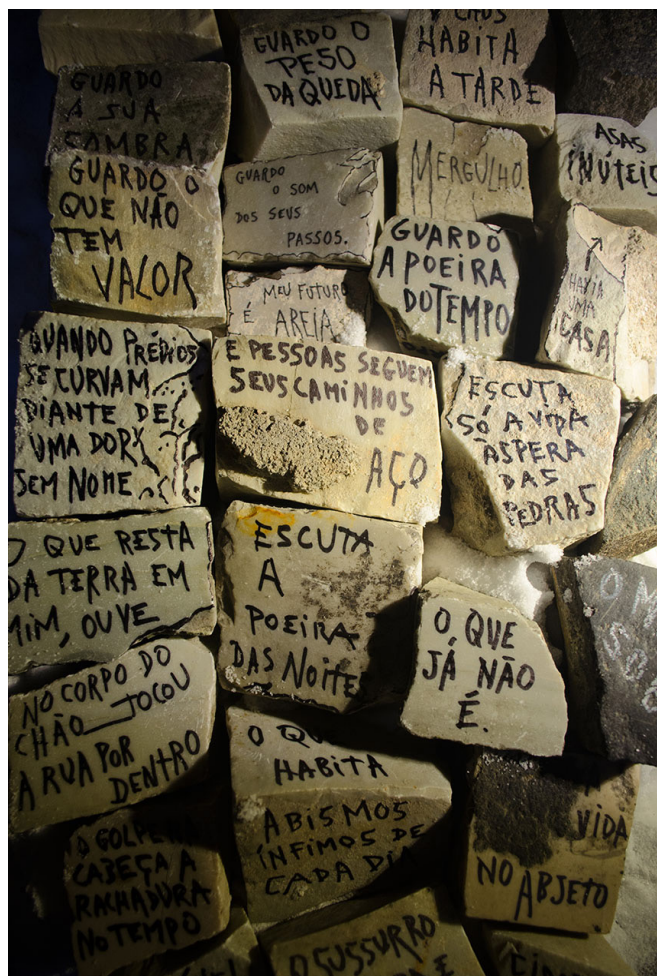 GUARDO
A SUA
SOMBRA
GUARDO O
QUE NÃO
TEM
VALOR
GUARDO O
PESO
DA QUEDA
HABITA
A TARDE
GUARDO
O SOM
DOS SEUS
PASSOS.
MERGULHO.
ASAS
INÚTEIS
MEU FUTURO
É AREIA
GUARDO
A POEIRA
DO TEMPO
HAVIA
UMA
CASA
QUANDO PRÉDIOS
SE CURVAM
DIANTE DE
UMA DOR
SEM NOME
E PESSOAS SEGUEM
SEUS CAMINHOS
DE
AÇO
ESCUTA
SÓ A VIDA
ÁSPERA
DAS
PEDRAS
O QUE RESTA
DA TERRA EM
MIM, OUVE
ESCUTA
A
POEIRA
DAS NOITES
O QUE
JÁ NÃO
É.
NO CORPO DO
CHÃO TOCOU
A RUA POR
DENTRO
O
HABITA
ABISMOS
ÍNFIMOS DE
CADA DIA
VIDA
NO ABJETO
O GOLPE
CABEÇA A
RACHADURA
NO TEMPO
O SUSSURRO